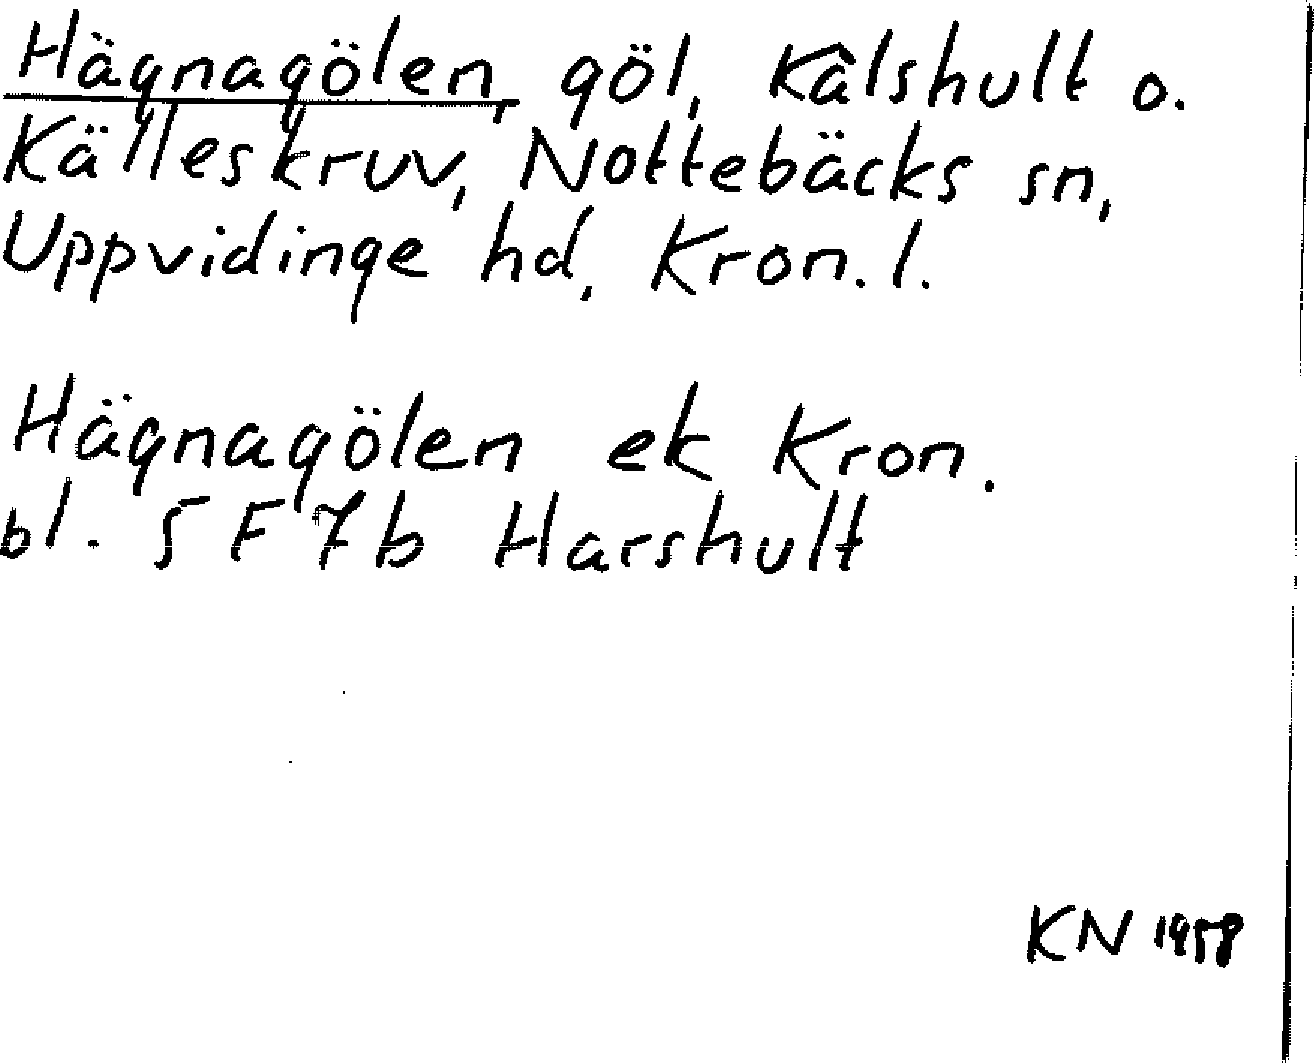 Hägnagölen, göl, Kålshult o.
Källeskruv, Nottebäcks sn,
Uppvidinge hd, Kron. l.
Hägnagölen ek Kron.
bl. 5 F 7 b Harshult
KN 1958